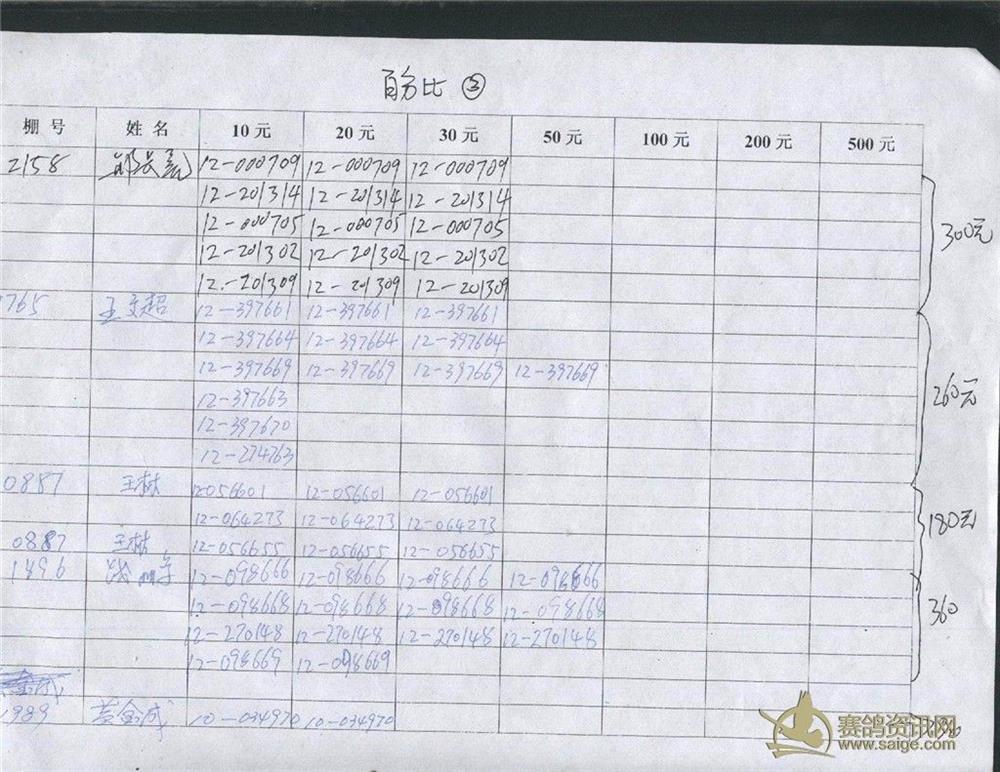 百分比 ②
棚号 姓名 10元 20元 30元 50元 100元 200元 500元
2158 12-000709 12-000709 12-000709
12-201314 12-201314 12-201314
12-000705 12-000705 12-000705 300元
12-201302 12-201302 12-201302
12-201309 12-201309 12-201309
1765 王文超 12-397661 12-397661 12-397661
12-397664 12-397664 12-397664
12-397669 12-397669 12-397669 12-397669
12-397663 260元
12-397670
12-274763
0887 王林 12056601 12-056601 12-056601
12-064273 12-064273 12-064273 180元
0887 王林 12-056655 12-056655 12-056655
1896 12-098666 12-098666 12-098666 12-098666
12-098668 12-098668 12-098668 12-098668 360
12-270148 12-270148 12-270148 12-270148
12-098669 12-098669
1989 黄金成 10-034970 10-034970
赛鸽资讯网
www.saige.com